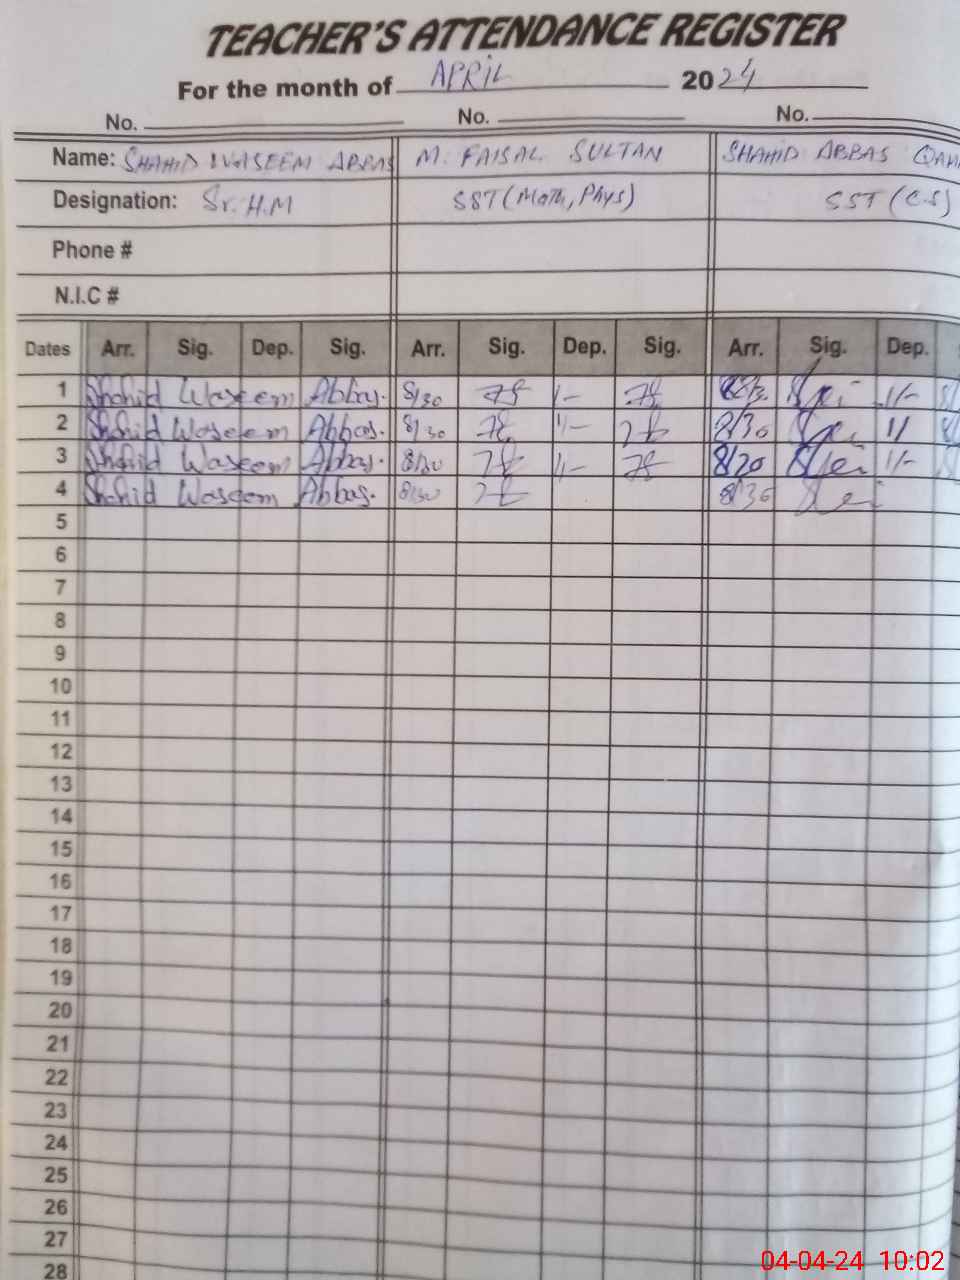 TEACHER'S ATTENDANCE REGISTER
For the month of APRIL 2024
No. No. No.
Name: SHAHID WASEEM ABBAS M. FAISAL SULTAN SHAHID ABBAS
Designation: Sr. H.M SST (Math, Phys) SST (C.S)
Phone #
N.I.C #
Dates Arr. Sig. Dep. Sig. Arr. Sig. Dep. Sig. Arr. Sig. Dep.
1 Shahid Waseem Abbas. 8/30 1/- 1/-
2 Shahid Waseem Abbas. 8/30 1/- 8/30 1/
3 Shahid Waseem Abbas. 8/30 1/- 8/30 1/-
4 Shahid Waseem Abbas. 8/30 8/30
5
6
7
8
9
10
11
12
13
14
15
16
17
18
19
20
21
22
23
24
25
26
27
28
04-04-24 10:02